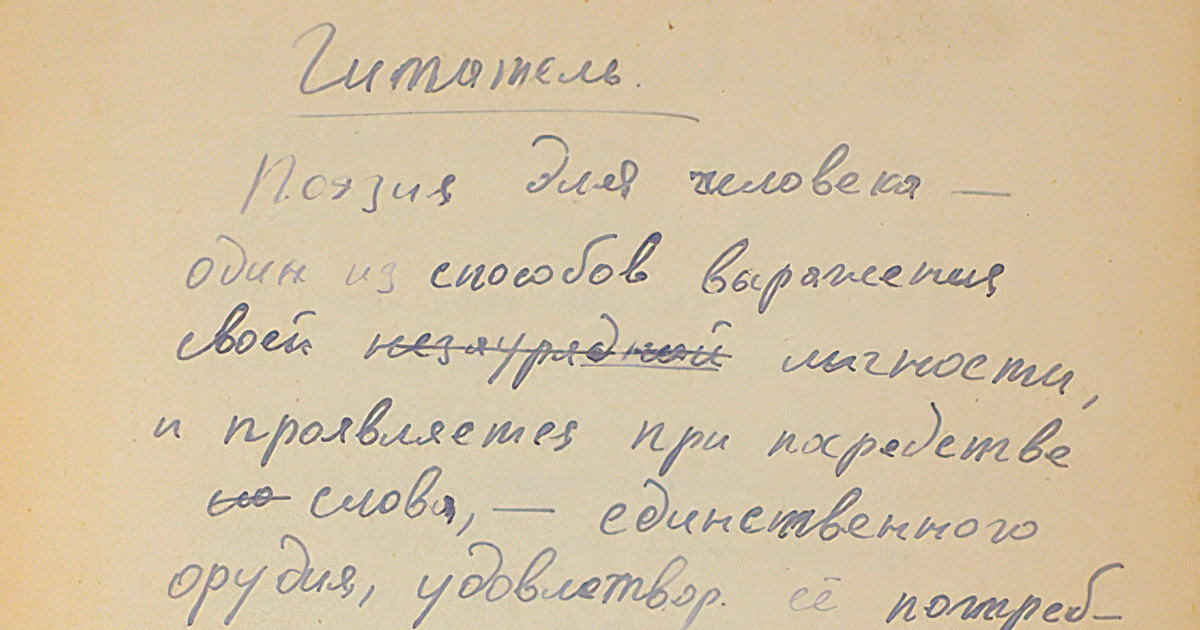 Читатель.
Поэзия для человека —
один из способов выражения
своей незаурядной личности,
и проявляется при посредстве
сло слова, — единственного
орудия, удовлетвор. её потреб-